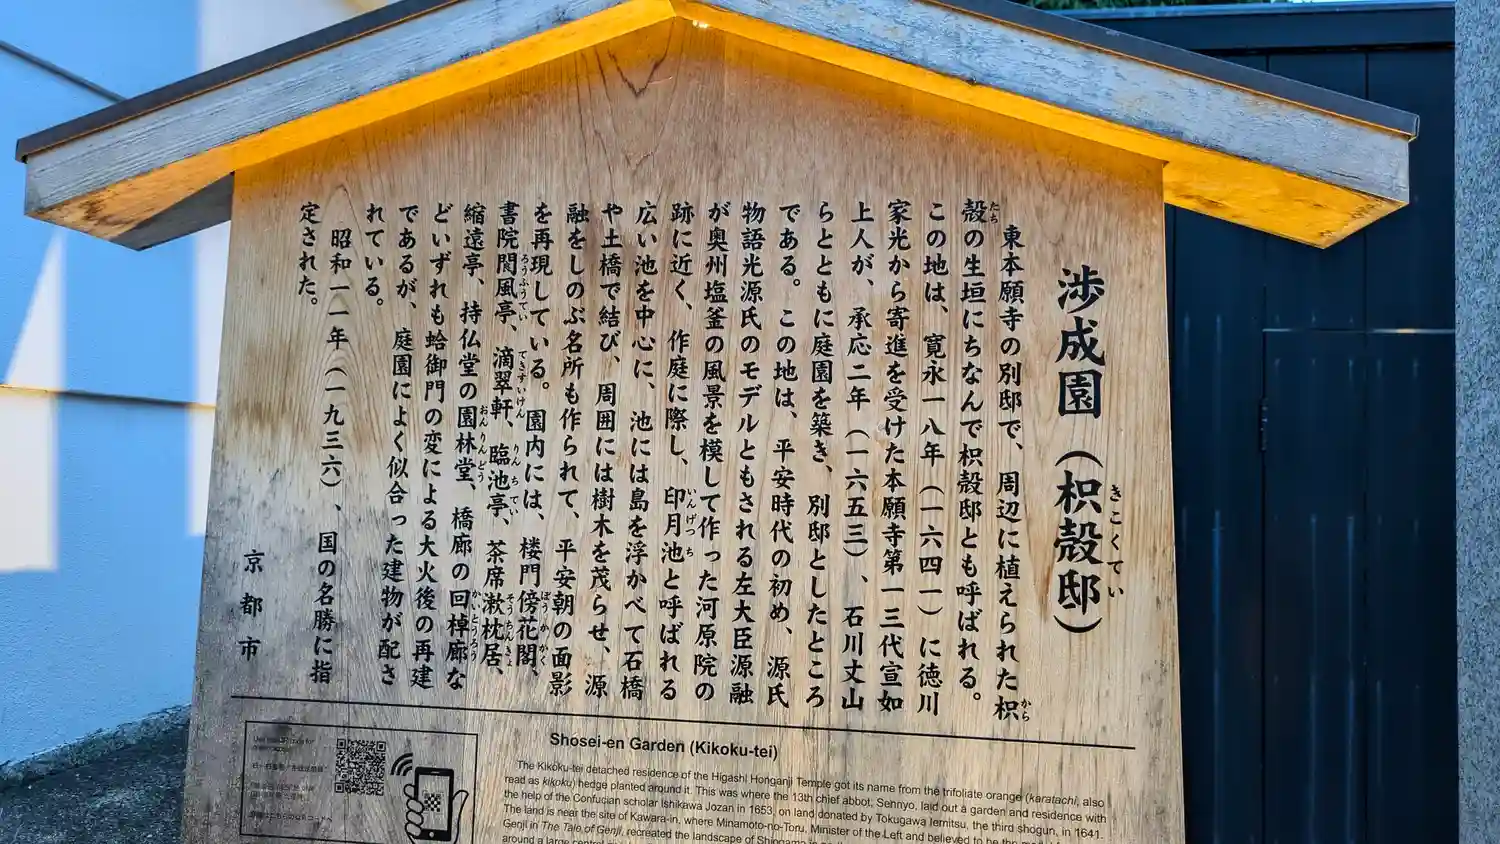 渉成園（枳殻邸）
きこくてい
東本願寺の別邸で、周辺に植えられた枳
から
殻の生垣にちなんで枳殻邸とも呼ばれる。
たち
この地は、寛永一八年（一六四一）に徳川
家光から寄進を受けた本願寺第一三代宣如
上人が、承応二年（一六五三）、石川丈山
らとともに庭園を築き、別邸としたところ
である。この地は、平安時代の初め、源氏
物語光源氏のモデルともされる左大臣源融
が奥州塩釜の風景を模して作った河原院の
跡に近く、作庭に際し、印月池と呼ばれる
いんげつち
広い池を中心に、池には島を浮かべて石橋
や土橋で結び、周囲には樹木を茂らせ、源
融をしのぶ名所も作られて、平安朝の面影
を再現している。園内には、楼門傍花閣、
ぼうかかく
書院閬風亭、滴翠軒、臨池亭、茶席漱枕居、
ろうふうてい てきすいけん りんちてい そうちんきょ
縮遠亭、持仏堂の園林堂、橋廊の回棹廊な
おんりんどう かいとうろう
どいずれも蛤御門の変による大火後の再建
であるが、庭園によく似合った建物が配さ
れている。
昭和一一年（一九三六）、国の名勝に指
定された。
京都市
Shosei-en Garden (Kikoku-tei)
The Kikoku-tei detached residence of the Higashi Honganji Temple got its name from the trifoliate orange (karatachi, also
read as kikoku) hedge planted around it. This was where the 13th chief abbot, Sennyo, laid out a garden and residence with
the help of the Confucian scholar Ishikawa Jozan in 1653, on land donated by Tokugawa Iemitsu, the third shogun, in 1641.
The land is near the site of Kawara-in, where Minamoto-no-Toru, Minister of the Left and believed to be the
Genji in The Tale of Genji, recreated the landscape of
around a large central